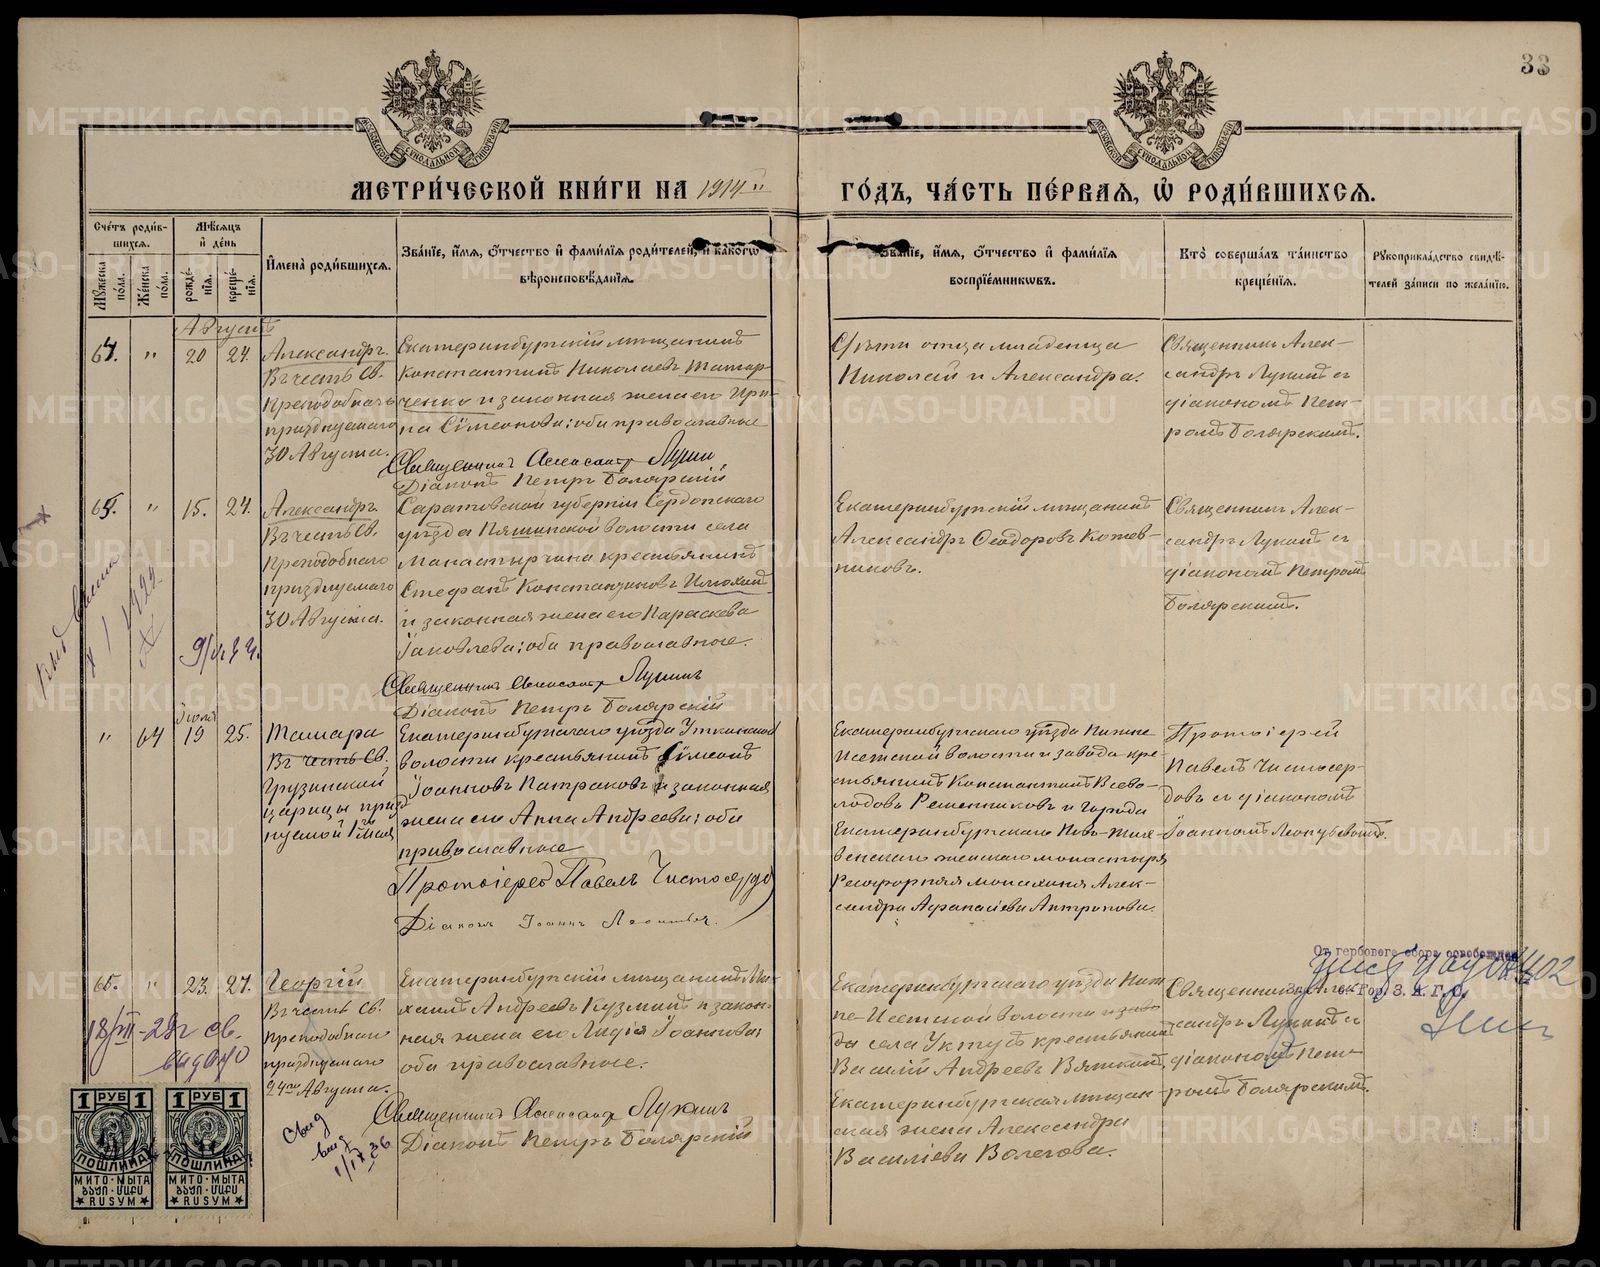 33
МОСКОВСКОЙ СѴНОДАЛЬНОЙ ТИПОГРАФІИ
МОСКОВСКОЙ СѴНОДАЛЬНОЙ ТИПОГРАФІИ
МЕТРИ́ЧЕСКОЙ КНИ́ГИ НА 1914 й
ГО́ДЪ, ЧА́СТЬ ПЕ́РВАЯ, Ѡ҆ РОДИ́ВШИХСЯ.
Сче́тъ роди́в-
шихся.
Мѣ́сяцъ
и҆ де́нь
Мꙋ́жеска
по́ла.
Же́нска
по́ла.
рожде́-
нїя.
креще́-
нїя.
И҆мена̀ роди́вшихся.
Зва́нїе, и҆́мя, ѻ҆́тчество и҆ фами́лїя роди́телей, и҆ како́гѡ
вѣроисповѣ́данїя.
Зва́нїе, и҆́мя, ѻ҆́тчество и҆ фами́лїя
воспрїе́мникѡвъ.
Кто̀ соверша́лъ та́инство
креще́нїя.
Рꙋкоприкла́дство свидѣ́-
телей за́писи по жела́нїю.
Августъ
64. " 20 24.
Александръ.
Въ честь Св.
Преподобнаго
празднуемаго
30 Августа.
Екатеринбургскій мѣщанинъ
Константинъ Николаевъ Татар-
ченко и законная жена его Ири-
на Сѵмеонова; оба православные
Священникъ Александръ Лукинъ
Діаконъ Петръ Боярскій
Сватъ отца младенца
Николай и Александра.
Священникъ Алек-
сандръ Лукинъ съ
діакономъ Пет-
ромъ Боярскимъ.
65. " 15. 24.
Александръ.
Въ честь Св.
Преподобнаго
празднуемаго
30 Августа.
Саратовской губерніи Сердопскаго
уѣзда волости села
крестьянинъ
Стефанъ Константиновъ Илюхинъ
и законная жена его Параскева
Іаковлева; оба православные.
Священникъ Александръ Лукинъ
Діаконъ Петръ Боярскій
Екатеринбургскій мѣщанинъ
Александръ Ѳеодоровъ Кожев-
никовъ.
Священникъ Алек-
сандръ Лукинъ съ
діакономъ Петромъ
Боярскимъ.
Іюля
" 64 19 25.
Тамара
Въ честь Св.
Грузинской
царицы празд
нуемой 1 мая
Екатеринбургскаго уѣзда Уткинской
волости крестьянинъ Сѵмеонъ
Іоанновъ Патраковъ и законная
жена его Анна Андреева; оба
православные
Протоіерей Павелъ Чистосердовъ
Діаконъ Іоаннъ Леонтьев.
Екатеринбургскаго уѣзда Нижне
Исетской волости и завода кре-
стьянинъ Константинъ Всево-
лодовъ Решетниковъ и города
Екатеринбургскаго Ново-Тих-
винскаго женскаго монастыря
Рясофорная монахиня Алек-
сандра Аѳанасіева Антропова.
Протоіерей
Павелъ Чистосер-
довъ съ діакономъ
Іоанномъ Леонтьевымъ.
66. " 23. 27.
Георгій
Въ честь Св.
преподобнаго
празднуемаго
24го Августа.
Екатеринбургскій мѣщанинъ Ми-
хаилъ Андреевъ Кузминъ и закон-
ная жена его Лидія Іоаннова;
оба православные.
Священникъ Александръ Лукинъ
Діаконъ Петръ Боярскій
Екатеринбургскаго уѣзда Ниж
не-Исетской волости и заво
да села Уктусъ крестьянинъ
Василій Андреевъ Вяткинъ,
Екатеринбургская мѣщан-
ская жена Александра
Василіева Волегова.
Священникъ Алек
сандръ Лукинъ съ
діакономъ Пет-
ромъ Боярскимъ.
От гербового сбора освобожден
Зав. Гор. З.А.Г.С.
18/III-28г св.
выдано
Свид
выд
1/IX 36
1 РУБ 1
ПОШЛИНА
МИТО·МЫТА
RUSYM
1 РУБ 1
ПОШЛИНА
МИТО·МЫТА
RUSYM
METRIKI.GASO-URAL.RU